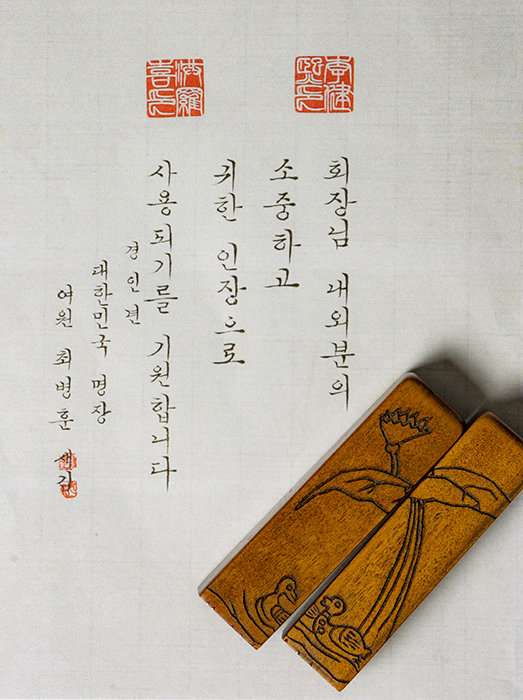 李健熙印
洪羅喜印
회장님 내외분의
소중하고
귀한 인장으로
사용되기를 기원합니다
경인년
대한민국 명장
여원 최병훈 새김